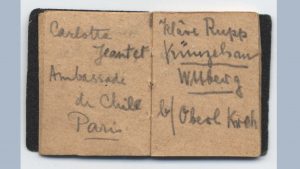 Carlotta
Jeantet
Ambassade
de Chile
Paris
Kläre Rupp
Künzelsau
Wttberg
b/ Oberl. Koch